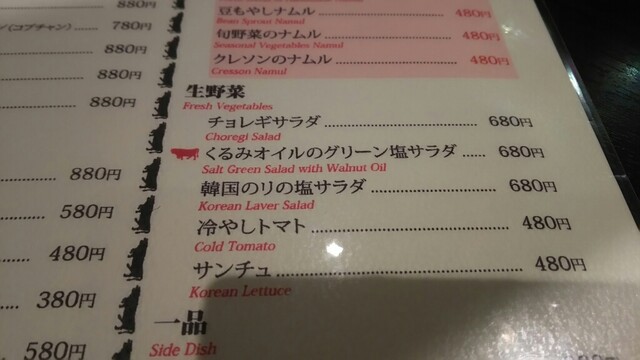 880円
(コプチャン) 780円
880円
880円
880円
880円
580円
480円
380円
580円
豆もやしナムル 480円
Bean Sprout Namul
旬野菜のナムル 480円
Seasonal Vegetables Namul
クレソンのナムル 480円
Cresson Namul
生野菜
Fresh Vegetables
チョレギサラダ 680円
Choregi Salad
くるみオイルのグリーン塩サラダ 680円
Salt Green Salad with Walnut Oil
韓国のリの塩サラダ 680円
Korean Laver Salad
冷やしトマト 480円
Cold Tomato
サンチュ 480円
Korean Lettuce
一品
Side Dish